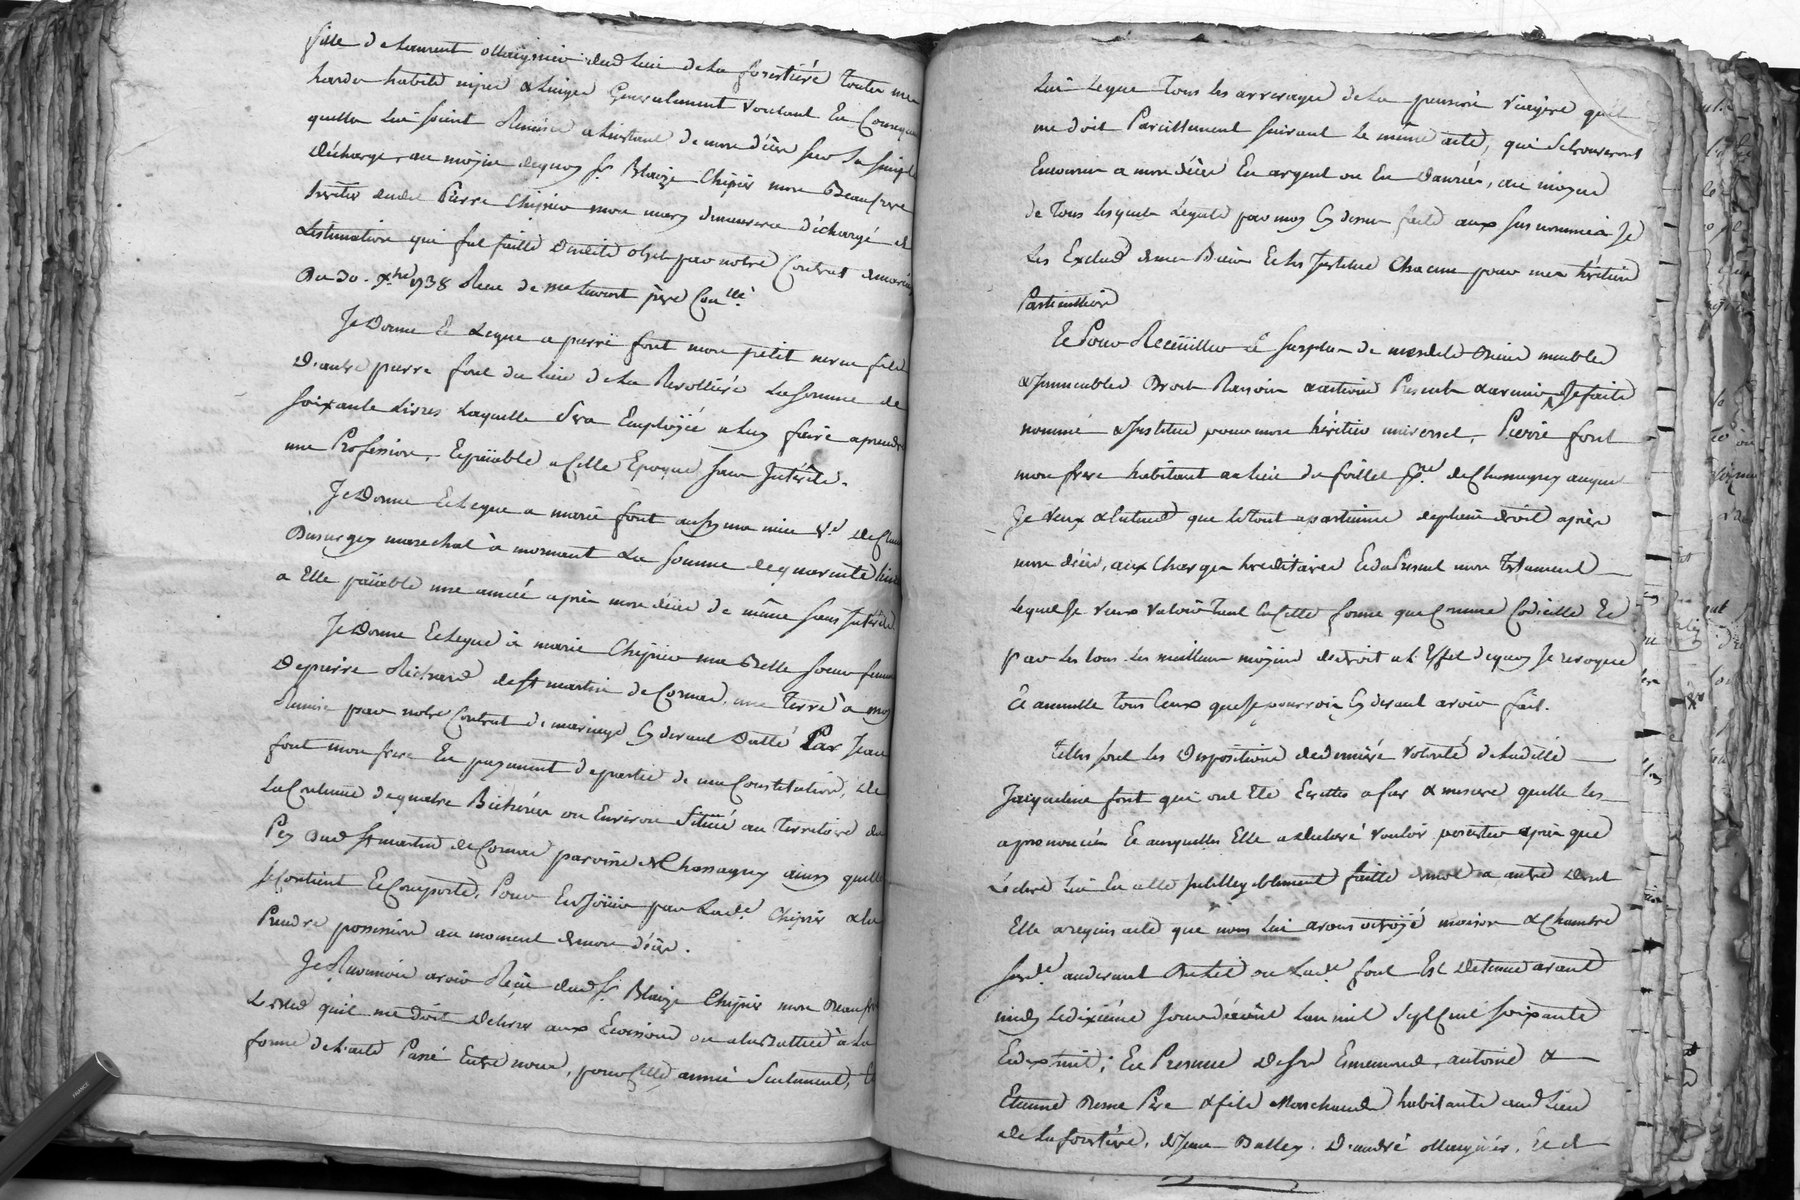 fille de Laurent Mangnier dud lieu de la forestière toutes mes
hardes habits nipes & linges Generalement voulant En Conseque
quelles Lui soient Remises a linstant de mon décès sous sa simple
décharge, au moyen dequoy sr Blaize Chipier mon Beaufrere
heritier dudt Pierre Chipier mon mary demeurera déchargé de
Lestimation qui fut faitte desdits objets par notre Contrat de mariage
Du 30. 9bre 1738 Reçu de me Laurent père Conlle.
Je Donne Et Legue a pierre font mon petit neveu fils
D'autre pierre font du lieu de La Revollière La somme de
soixante Livres Laquelle sera Employée a luy faire aprendre
une Profession, Et païable a Cette Epoque sans Intérêts.
Je Donne Et Legue a marie font aussy ma niece ve de Claude
marechal à mornant La somme de quarante livres
a Elle païable une année après mon décès de même sans Intérêts
Je Donne Et Legue à marie Chipier ma Belle soeur femme
De pierre Richard de st martin de Cornas, une Terre à moy
Remise par notre Contrat de mariage Cy devant Datté Par Jean
font mon frere En payement de partie de ma Constitution, de
La Contenue de quatre Bicherées ou Environ Située au Territoire du
Pey dud st martin de Cornas paroisse de Chassagny ainsy quelle
se Contient Et Comporte, Pour En Jouir par Lade Chipier & la
Prendre possession au moment de mon décès.
Je Reconnois avoir Reçu dud sr Blaize Chipier mon Beaufrere
Le bled quil me doit delivrer aux Ecossions ou a la Battue à La
forme de L'acte Passé Entre nous, pour Cette année Seulement, Et
Lui Legue Tous les arrerages de La pension viagere quil
me doit Pareillement suivant Le même acte, qui se trouveront
Encourus a mon décès En argent ou En Danrées, au moyen
de Tous lesquels Legats par moy Cy dessus faits aux sus nommés Je
Les Exclus de mes Biens Et les Institue Chacun pour mes héritiers
Particulliers
Et Pour Recüeillir Le surplus de mesdits Biens meubles
& Immeubles Droits Raisons & actions Presents & avenir Je faits
nommé & Institue pour mon héritier universel, Pierre font
mon frere habitant au lieu du foillet psse de Chassagny auquel
Je veux & Entend que le tout apartienne de plein droit après
mon décès, aux Charges hereditaires Et du Present mon Testament
Lequel Je veux valoir Tant En Cette forme que Comme Codicille Et
par Les tous Les meilleurs moyens de droit a L'Effet dequoy Je revoque
Et annulle tous Ceux que Je pourrois Cy devant avoir fait.
Telles sont les Dispositions de derniere volonté de Ladite
Jacqueline font qui ont Eté Ecrittes a fur & mesure quelle les
a prononcées Et auxquelles Elle a declaré vouloir persister après que
Lecture Lui En a Eté intelligiblement faitte de mot a autre dont
Elle a requis acte que nous Lui avons octroyé maison & Chambre
susde audevant du Lit ou Lade font Est detenue avant
midy Le dixième jour daoust L'an mil Sept Cent soixante
Et dix huit; En Presence de sr Ennemond, antoine &
Etienne Besse Père & fils Marchands habitants aud Lieu
de La forestière, de Jean Balley, D'andré Mangnier, Et d